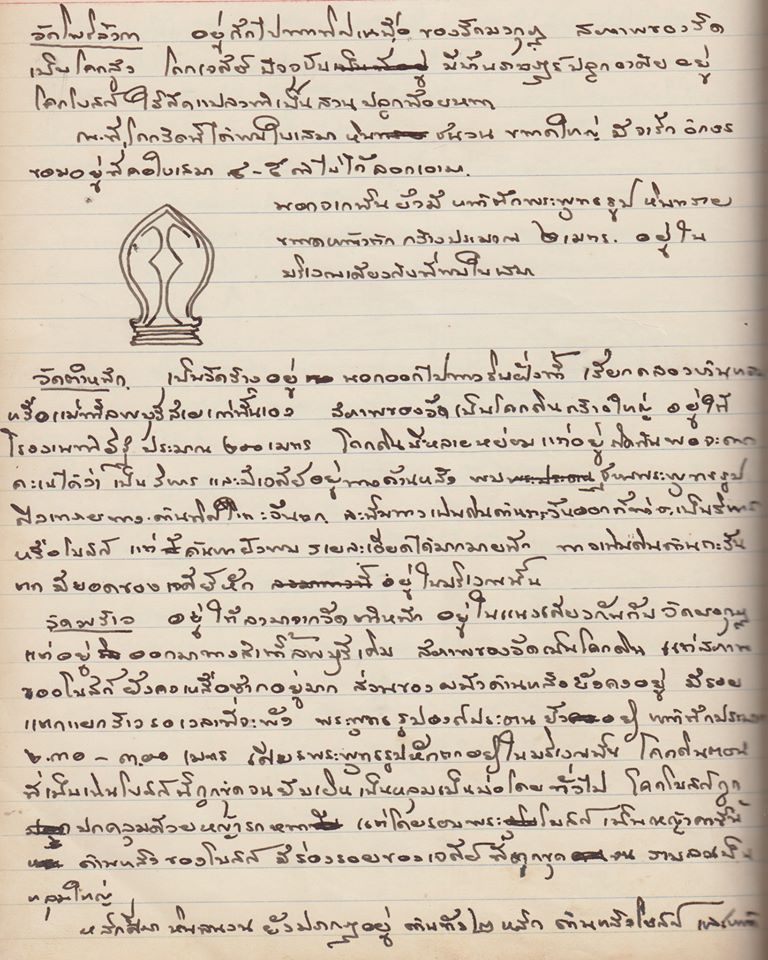 วัดโพธิ์ลังกา อยู่ลึกไปทางทิศเหนือ ของวัดมงกุฎ สภาพของวัด
เป็นโคกสูง โคกเจดีย์ ปัจจุบัน มีบ้านราษฎรปลูกอาศัย อยู่
โคกโบสถ์ ได้ดัดแปลงที่เป็นสวน ปลูกน้อยหน่า
ณ.ที่โคกวัดนี้ ได้พบใบเสมา หิน ชนวน ขนาดใหญ่ มีจารึก อักษร
ขอมอยู่ที่คอใบเสมา ๔-๕ ตัว ไม่ได้ลอกเอามา
นอกจากนั้น ยังมี หน้าตักพระพุทธรูป หินทราย
ขนาดหน้าตัก กว้างประมาณ ๒ เมตร. อยู่ใน
บริเวณเดียวกับที่พบใบเสมา
วัดตำหนัก เป็นวัดร้างอยู่ นอกออกไปทางริมฝั่งน้ำ เรียกคลอง
หรือแม่น้ำลพบุรีสายเก่านั้นเอง สภาพของวัด เป็นโคกดินกว้างใหญ่ อยู่ใต้
โรง ประมาณ ๒๐๐ เมตร โคกดินมีหลายหย่อม แต่อยู่ติดกัน พอจะ
คะเนได้ว่า เป็นวิหาร และมีเจดีย์ อยู่ทางด้านหลัง พบ ชิ้นพระพุทธรูป
หินทราย ทาง.ด้านทิศใต้ ทางเนินดินด้านตะวันออก เป็นวิหาร
หรือโบสถ์ แต่ ค้นหายังพบ รายละเอียดได้มาก ทางเนินดินด้านตะวัน
ตก มียอดของเจดีย์หัก อยู่ในบริเวณนั้น
วัดมะพร้าว อยู่ใต้ลงมาจากวัดตำหนัก อยู่ในแนวเดียวกันกับ วัดมงกุฎ
แต่อยู่ ออกมาทางลำน้ำลพบุรีเดิม สภาพของวัดเป็นโคกดิน แต่สภาพ
ของโบสถ์ ยังคงเหลือซากอยู่มาก ส่วนของผนังด้านเหลือยังคงอยู่ มีรอย
แตกแยกร้าวรอเวลาที่จะพัง พระพุทธรูปองค์ประธาน ยังอยู่ หน้าตักประมาณ
๒.๓๐ - ๓.๐๐ เมตร เศียรพระพุทธรูปหักตกอยู่ในบริเวณนั้น โคกดินตอน
ที่เป็นเนินโบสถ์ นี้ถูกขุดจนยับเยิน เป็นหลุมเป็นบ่อโดยทั่วไป โคกโบสถ์ถูก
ปกคลุมด้วยหญ้ารกหนา แต่โดยรอบพระโบสถ์ เป็นหญ้าคา
ด้านหลังของโบสถ์ มีร่องรอยของเจดีย์ ที่ถูกขุด จน เป็น
หลุมใหญ่
หลักสีมา หินชนวน ยังปรากฏอยู่ ด้านทั้ง ๒ หลัก ด้านหลังโบสถ์